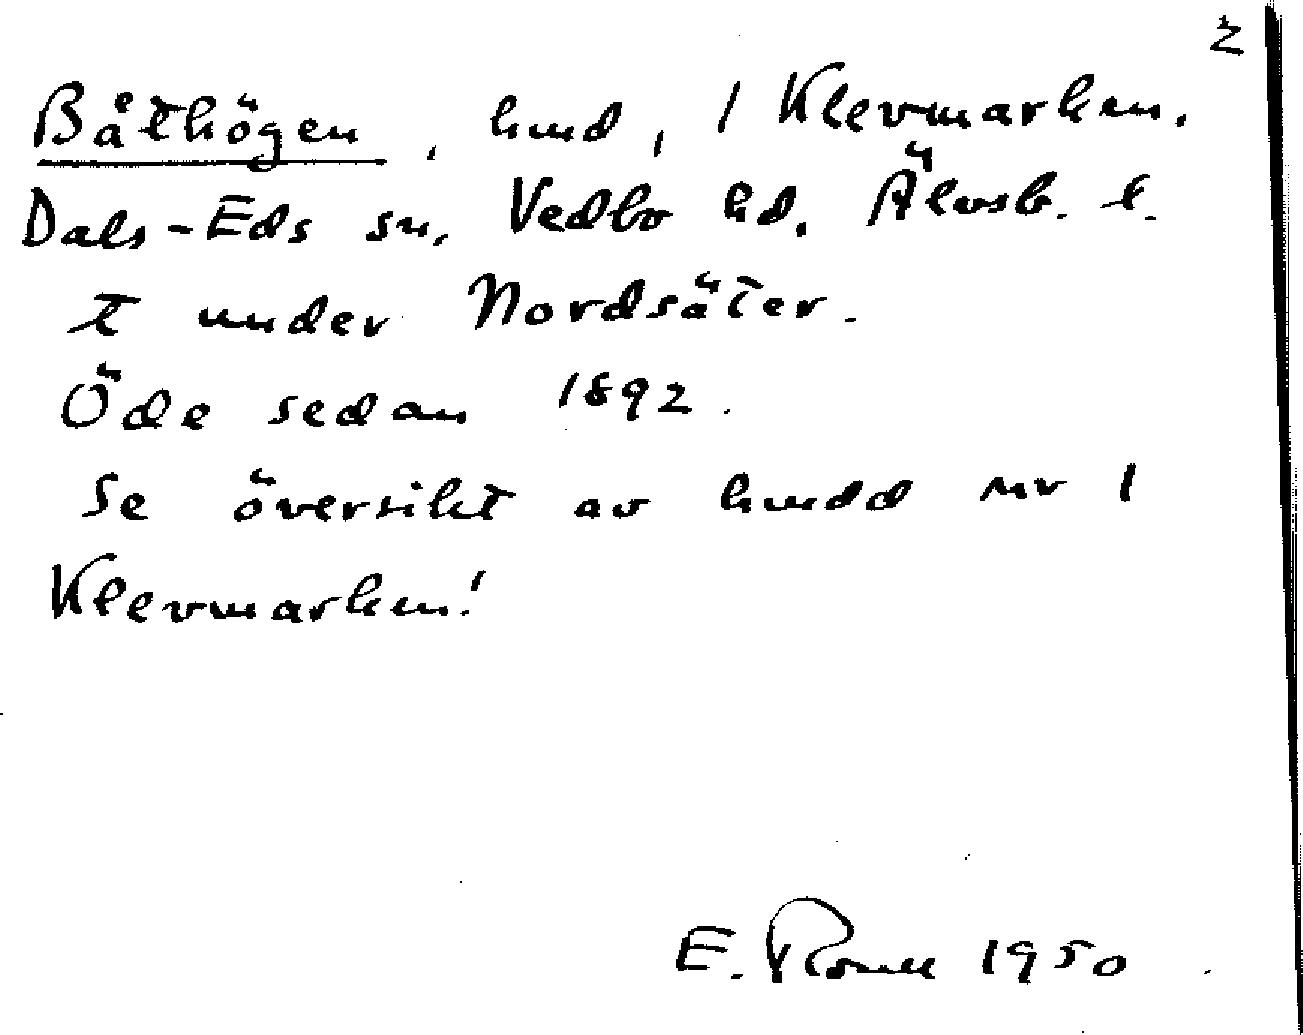 2
Båthögen, hmd, 1 Klevmarken.
Dals-Eds sn, Vedbo hd. Älvsb. l.
t under Nordsäter.
Öde sedan 1892.
Se översikt av hmdd nr 1
Klevmarken!
E. 1950